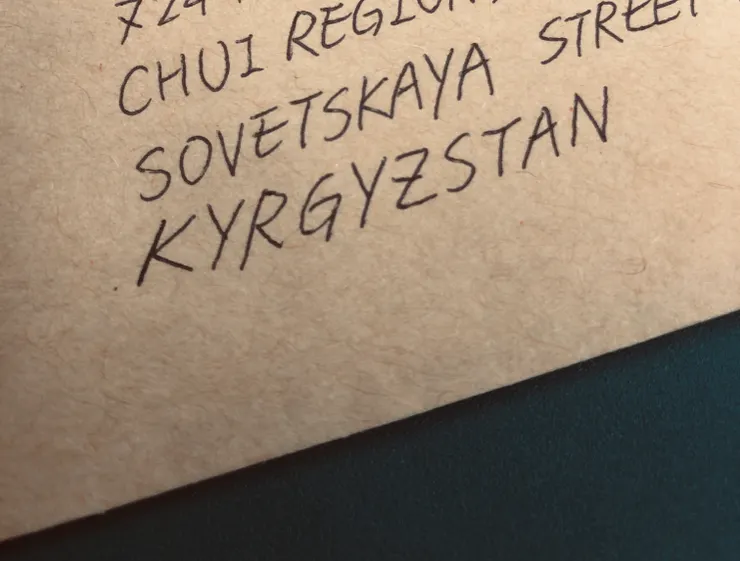 724
CHUI REGION
SOVETSKAYA STREET
KYRGYZSTAN